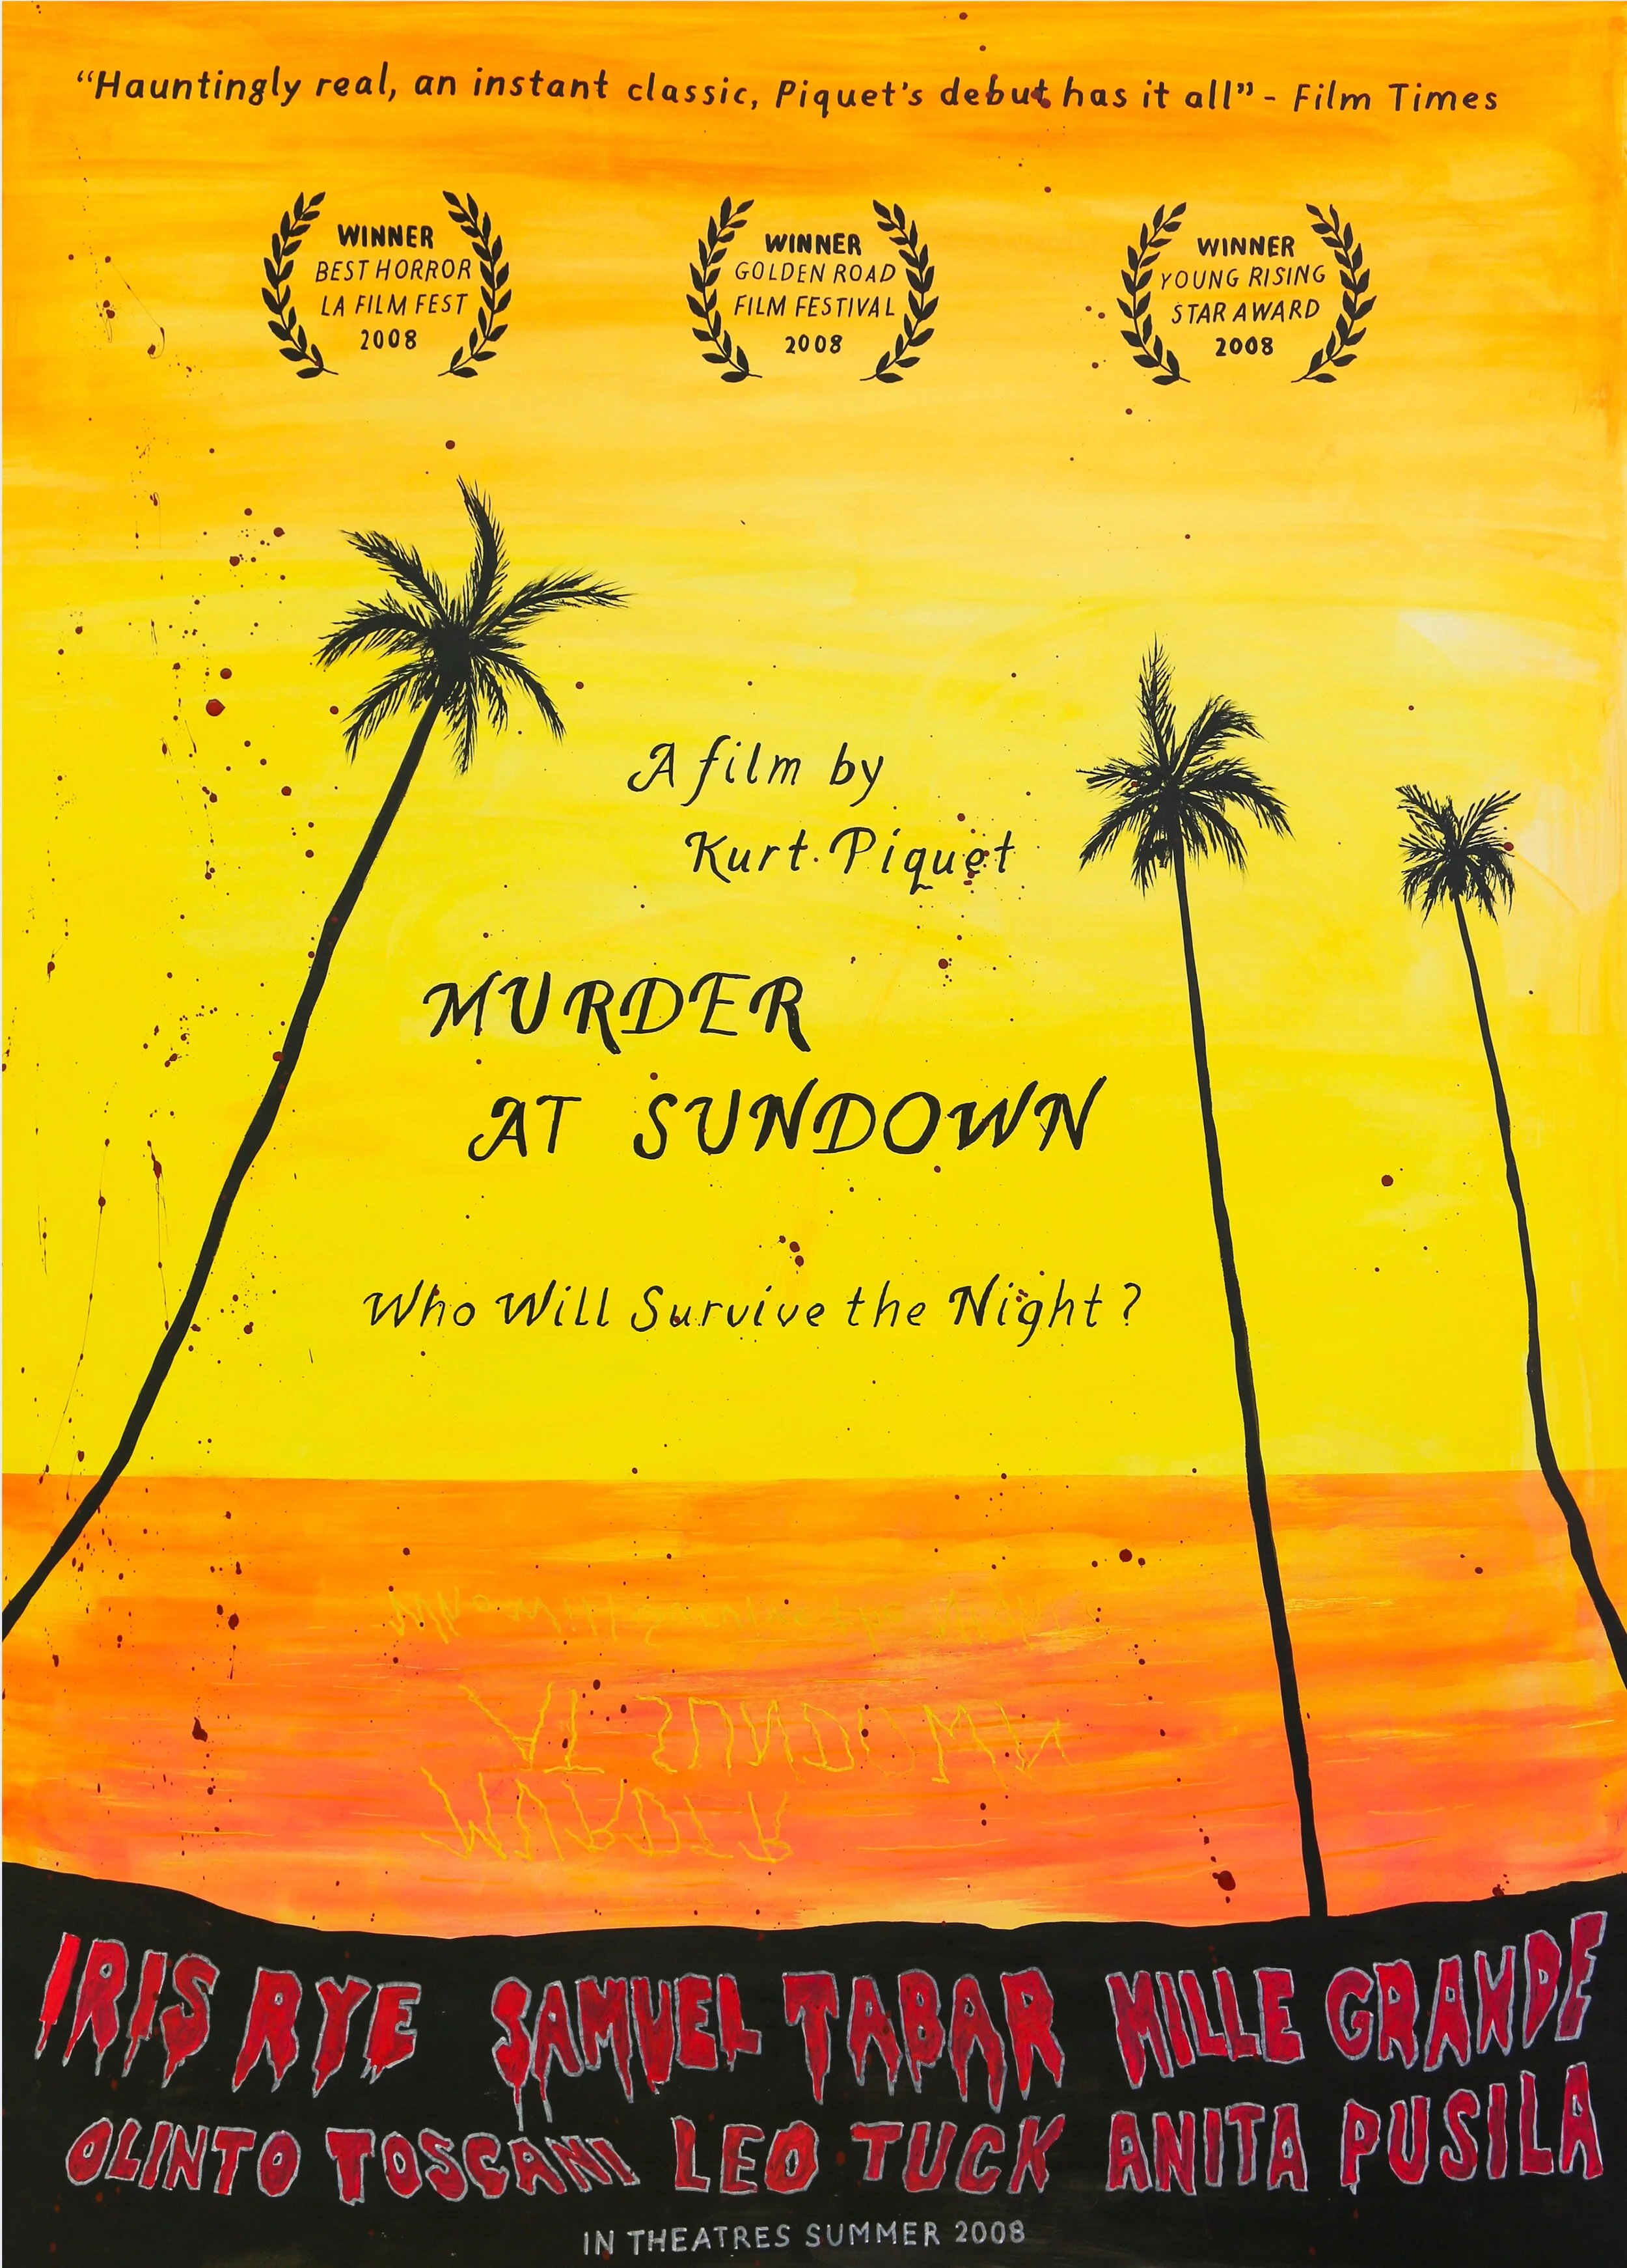 “Hauntingly real, an instant classic, Piquet's debut has it all” - Film Times
WINNER
BEST HORROR
LA FILM FEST
2008
WINNER
GOLDEN ROAD
FILM FESTIVAL
2008
WINNER
YOUNG RISING
STAR AWARD
2008
A film by
Kurt Piquet
MURDER
AT SUNDOWN
Who Will Survive the Night?
Who Will Survive the Night?
AT SUNDOWN
MURDER
IRIS RYE SAMUEL TABAR MILLE GRANDE
OLINTO TOSCANI LEO TUCK ANITA PUSILA
IN THEATRES SUMMER 2008